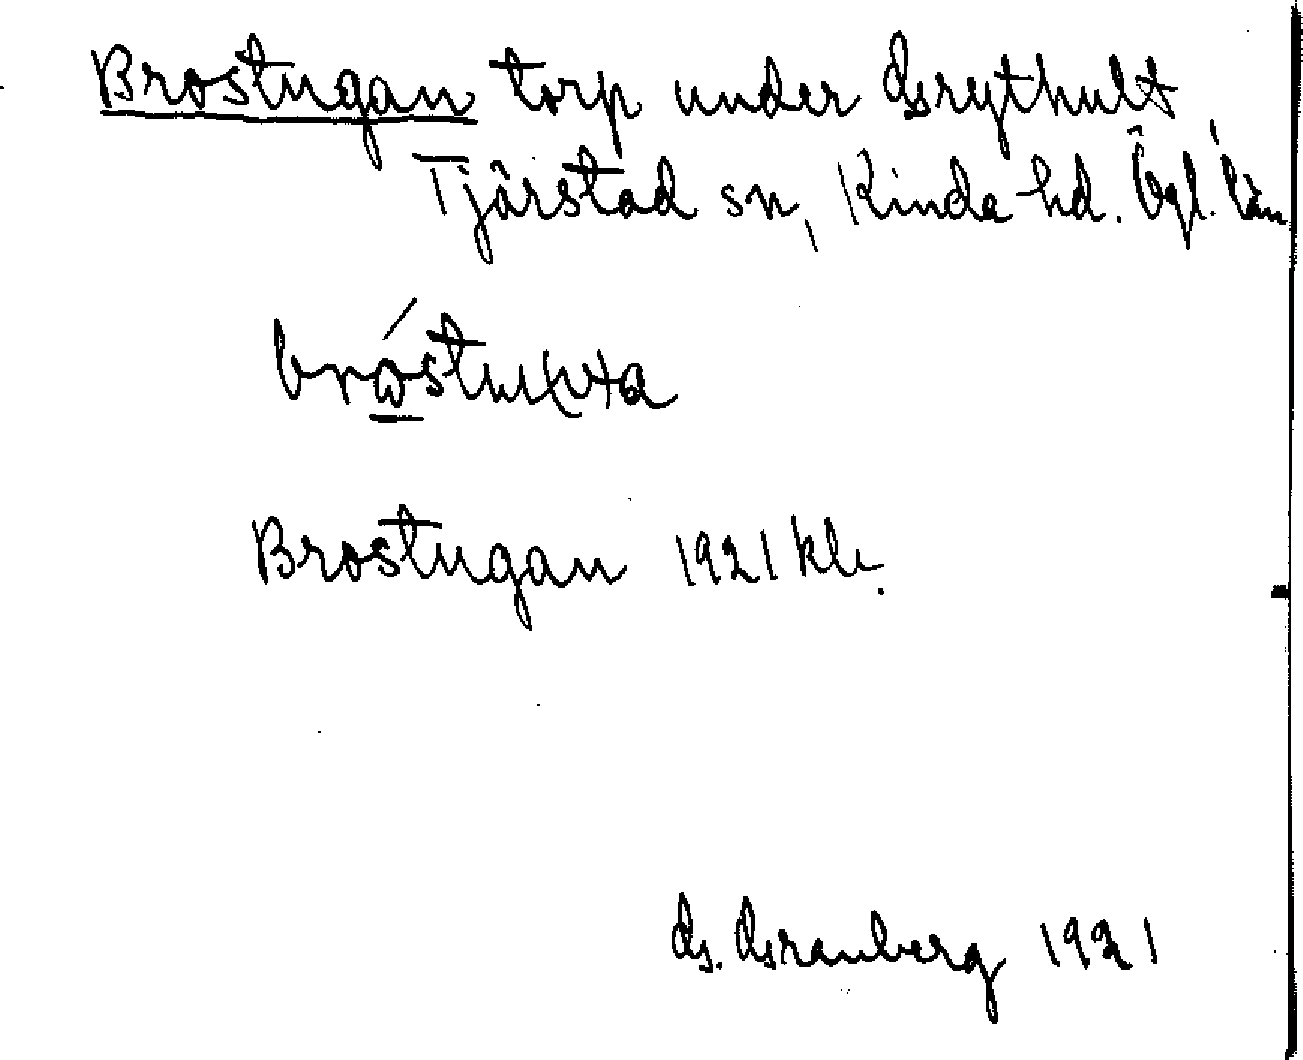 Brostugan torp under Grythult
Tjärstad sn, Kinda hd. Ögl. län
Brostugan 1921 kll.
G. Granberg 1921